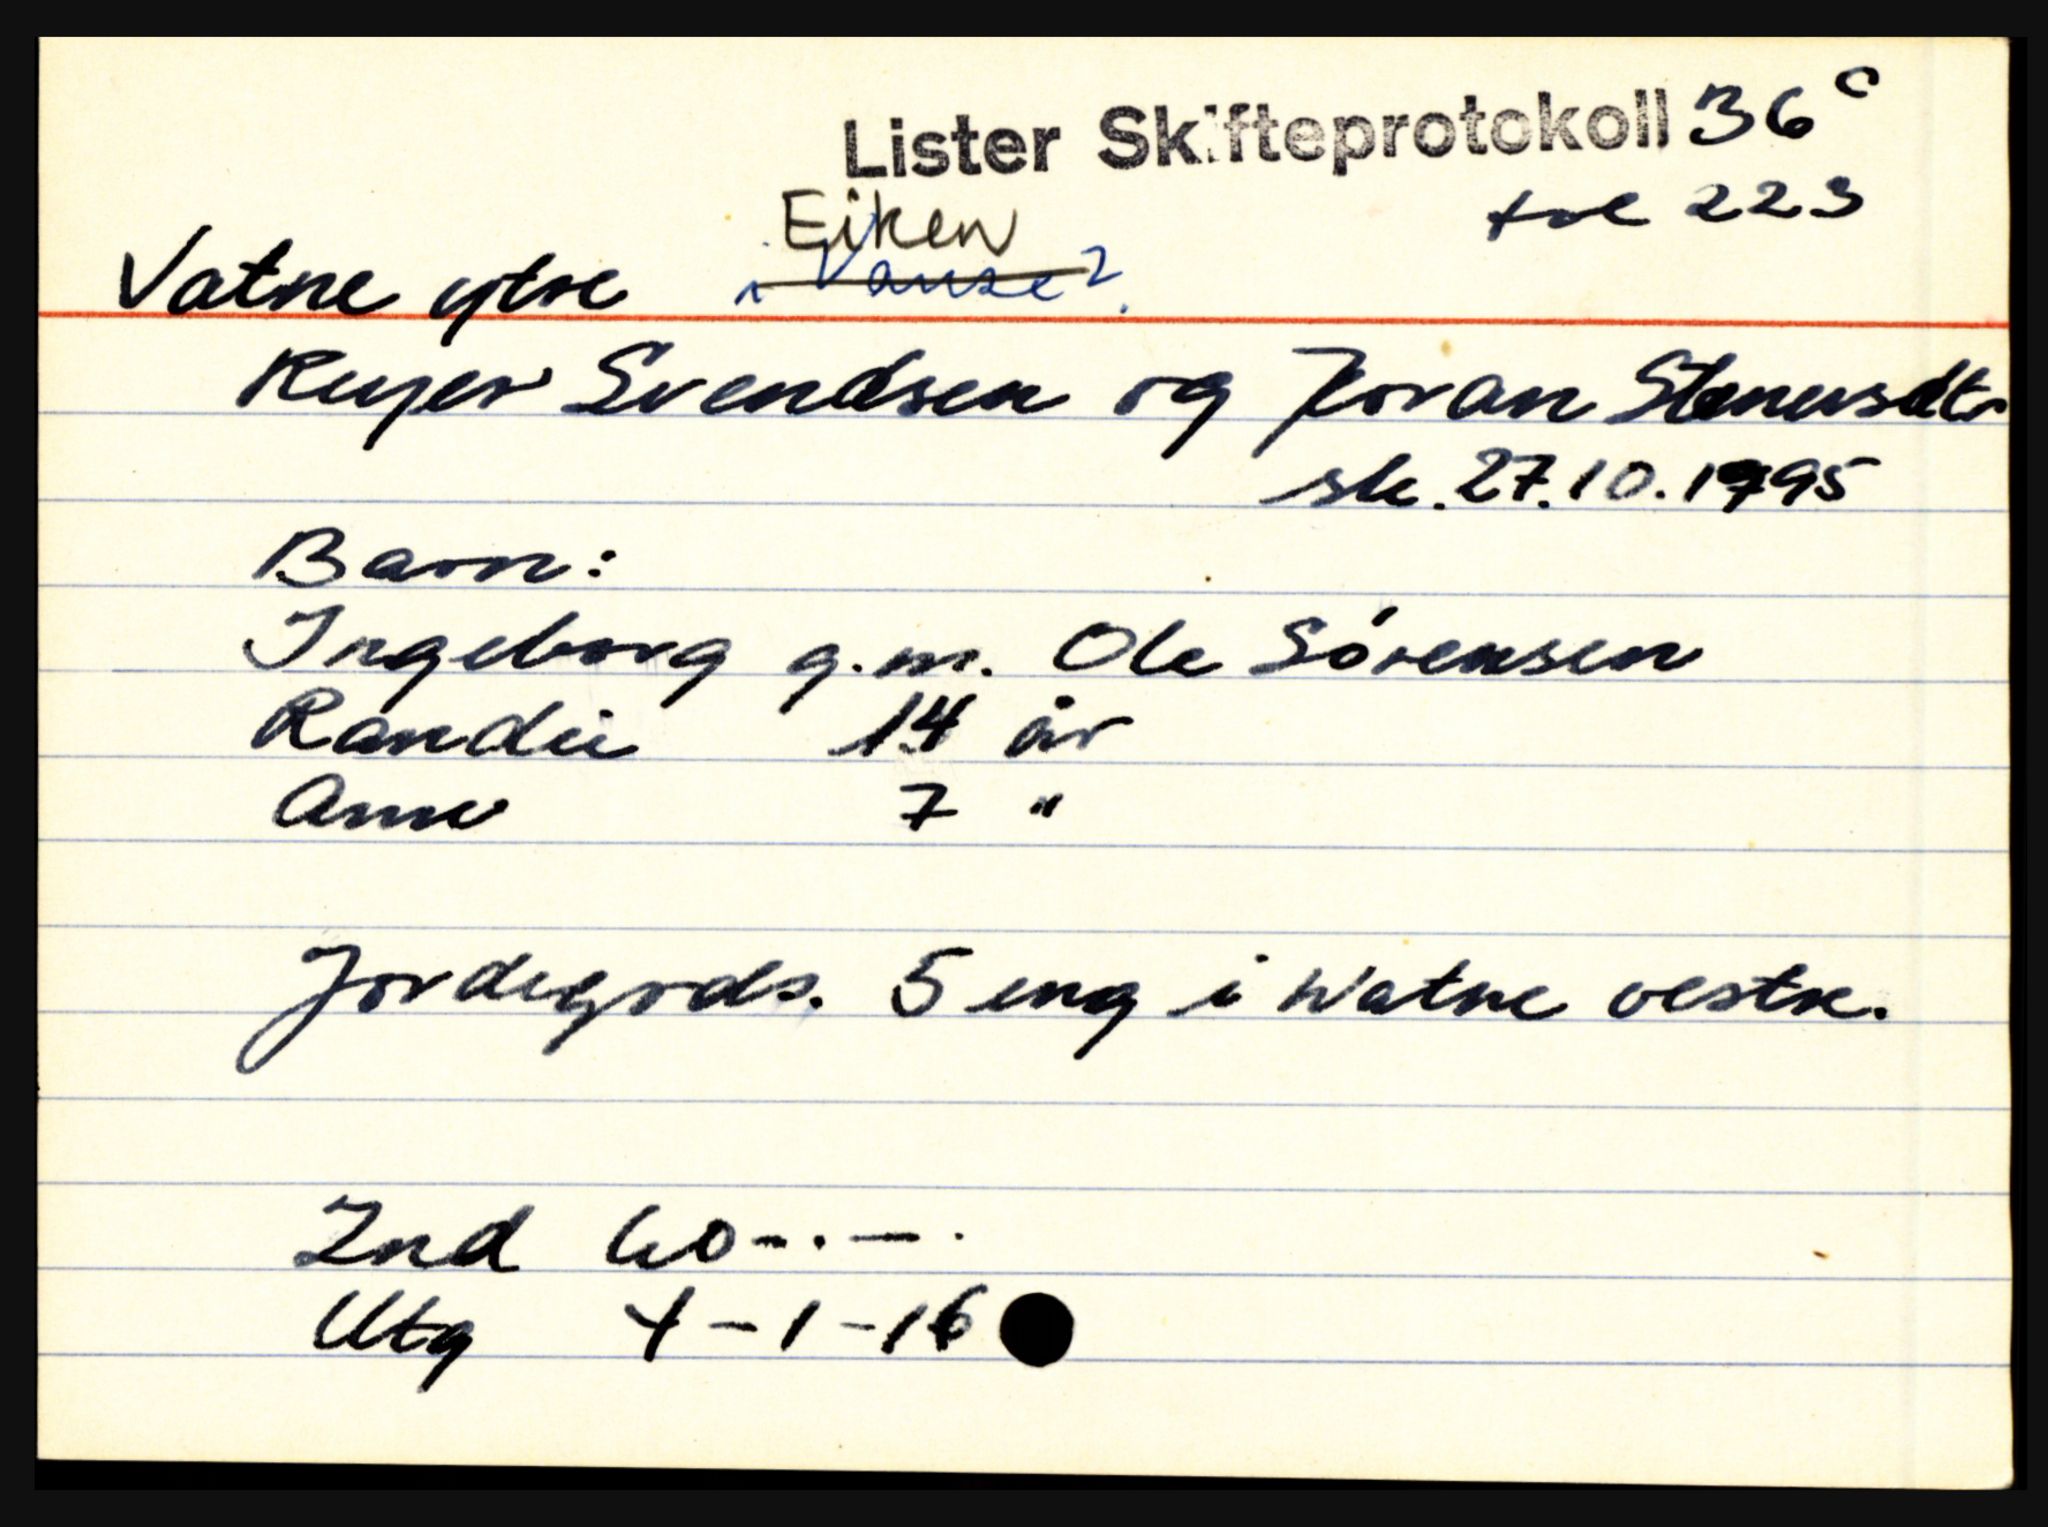 Lister Skifteprotokoll 36 c
fol 223
Eiken
Vatne ytre i Vanse?
Reyer Svendsen og Joran Stenersdtr
sk. 27.10.1795
Barn:
Ingeborg g.m. Ole Sörensen
Randei 14 år
Anne 7 "
Jordegods. 5 eng i Watne vestre.
Ind 60-.-.
Utg 4-1-16